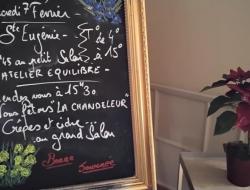 credi 7 Février
Ste Eugénie - T° de 4°
à 15°
45 au petit Salon
ATELIER EQUILIBRE -
endez vous à 15H30
ous fêtons "LA CHANDELEUR"
Crêpes et cidre...
au grand Salon
Bonne